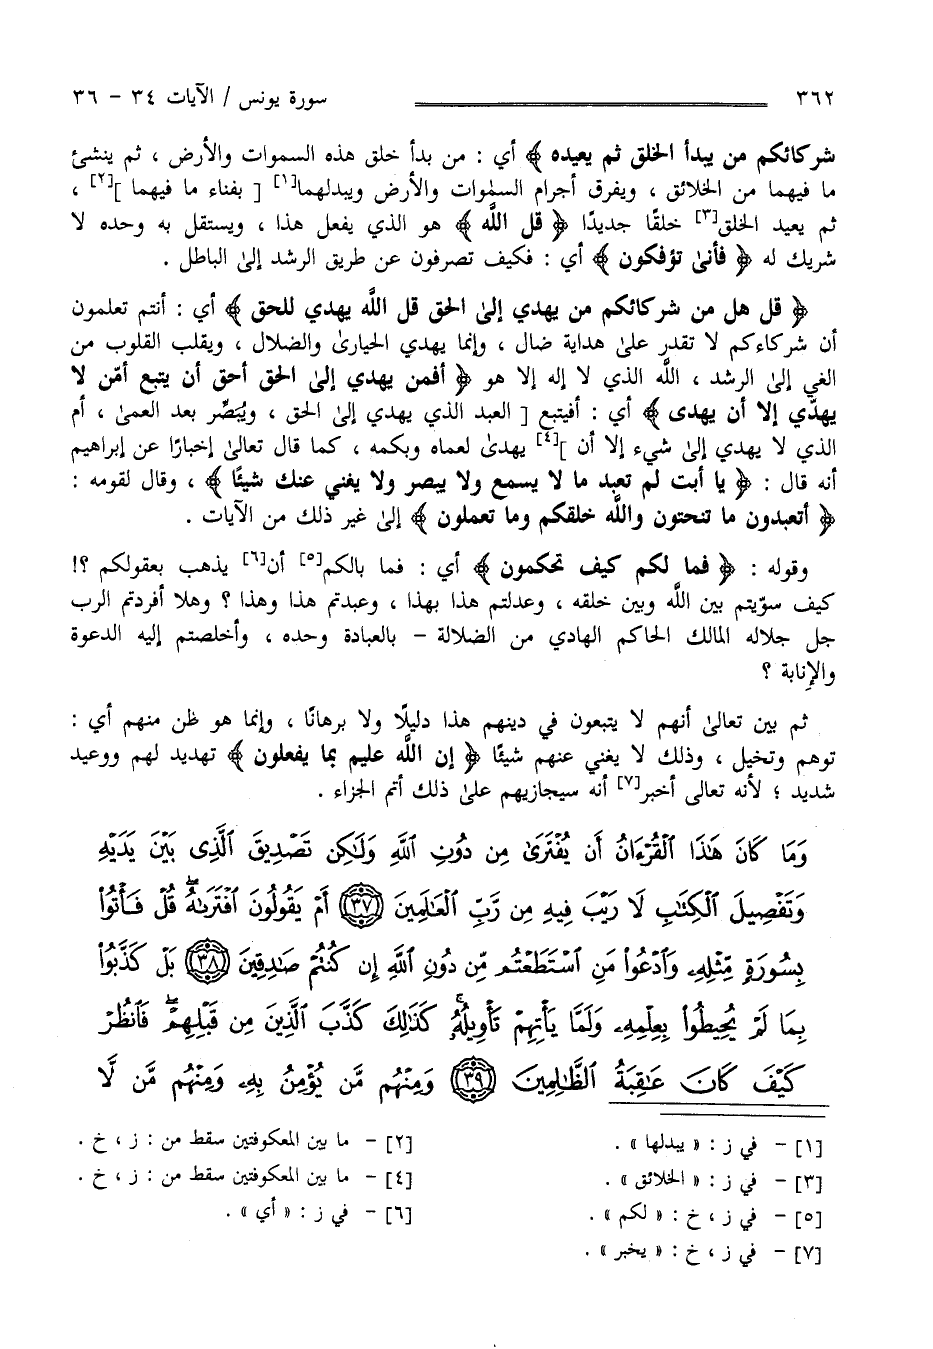 ٣٦٢ سورة يونس / الآيات ٣٤ - ٣٦
شركائكم من يبدأ الخلق ثم يعيده ﴾ أي : من بدأ خلق هذه السموات والأرض ، ثم ينشئ
ما فيهما من الخلائق ، ويفرق أجرام السمٰوات والأرض ويبدلهما[١] [ بفناء ما فيهما ][٢] ،
ثم يعيد الخلق[٣] خلقًا جديدًا ﴿ قل اللَّه ﴾ هو الذي يفعل هذا ، ويستقل به وحده لا
شريك له ﴿ فأنىٰ تؤفكون ﴾ أي : فكيف تصرفون عن طريق الرشد إلىٰ الباطل .
﴿ قل هل من شركائكم من يهدي إلىٰ الحق قل اللَّه يهدي للحق ﴾ أي : أنتم تعلمون
أن شركاءكم لا تقدر علىٰ هداية ضال ، وإنما يهدي الحيارىٰ والضلال ، ويقلب القلوب من
الغي إلىٰ الرشد ، اللَّه الذي لا إله إلا هو ﴿ أفمن يهدي إلىٰ الحق أحق أن يتبع أمّن لا
يهدّي إلا أن يهدى ﴾ أي : أفيتبع [ العبد الذي يهدي إلىٰ الحق ، ويُبَصِّر بعد العمىٰ ، أم
الذي لا يهدي إلىٰ شيء إلا أن ][٤] يهدىٰ لعماه وبكمه ، كما قال تعالىٰ إخبارًا عن إبراهيم
أنه قال : ﴿ يا أبت لم تعبد ما لا يسمع ولا يبصر ولا يغني عنك شيئًا ﴾ ، وقال لقومه :
﴿ أتعبدون ما تنحتون واللَّه خلقكم وما تعملون ﴾ إلىٰ غير ذلك من الآيات .
وقوله : ﴿ فما لكم كيف تحكمون ﴾ أي : فما بالكم[٥] أن[٦] يذهب بعقولكم ؟!
كيف سوّيتم بين اللَّه وبين خلقه ، وعدلتم هذا بهذا ، وعبدتم هذا وهذا ؟ وهلا أفردتم الرب
جل جلاله المالك الحاكم الهادي من الضلالة - بالعبادة وحده ، وأخلصتم إليه الدعوة
والإنابة ؟
ثم بين تعالىٰ أنهم لا يتبعون في دينهم هذا دليلًا ولا برهانًا ، وإنما هو ظن منهم أي :
توهم وتخيل ، وذلك لا يغني عنهم شيئًا ﴿ إن اللَّه عليم بما يفعلون ﴾ تهديد لهم ووعيد
شديد ؛ لأنه تعالى أخبر[٧] أنه سيجازيهم علىٰ ذلك أتم الجزاء .
وَمَا كَانَ هَٰذَا ٱلْقُرْءَانُ أَن يُفْتَرَىٰ مِن دُونِ ٱللَّهِ وَلَٰكِن تَصْدِيقَ ٱلَّذِى بَيْنَ يَدَيْهِ
وَتَفْصِيلَ ٱلْكِتَٰبِ لَا رَيْبَ فِيهِ مِن رَّبِّ ٱلْعَٰلَمِينَ ٣٧ أَمْ يَقُولُونَ ٱفْتَرَىٰهُ ۖ قُلْ فَأْتُوا۟
بِسُورَةٍ مِّثْلِهِۦ وَٱدْعُوا۟ مَنِ ٱسْتَطَعْتُم مِّن دُونِ ٱللَّهِ إِن كُنتُمْ صَٰدِقِينَ ٣٨ بَلْ كَذَّبُوا۟
بِمَا لَمْ يُحِيطُوا۟ بِعِلْمِهِۦ وَلَمَّا يَأْتِهِمْ تَأْوِيلُهُۥ ۚ كَذَٰلِكَ كَذَّبَ ٱلَّذِينَ مِن قَبْلِهِمْ ۖ فَٱنظُرْ
كَيْفَ كَانَ عَٰقِبَةُ ٱلظَّٰلِمِينَ ٣٩ وَمِنْهُم مَّن يُؤْمِنُ بِهِۦ وَمِنْهُم مَّن لَّا
[١] - في ز : « يبدلها » . [٢] - ما بين المعكوفتين سقط من : ز ، خ .
[٣] - في ز : « الخلائق » . [٤] - ما بين المعكوفتين سقط من : ز ، خ .
[٥] - في ز ، خ : « لكم » . [٦] - في ز : « أي » .
[٧] - في ز ، خ : « يخبر » .